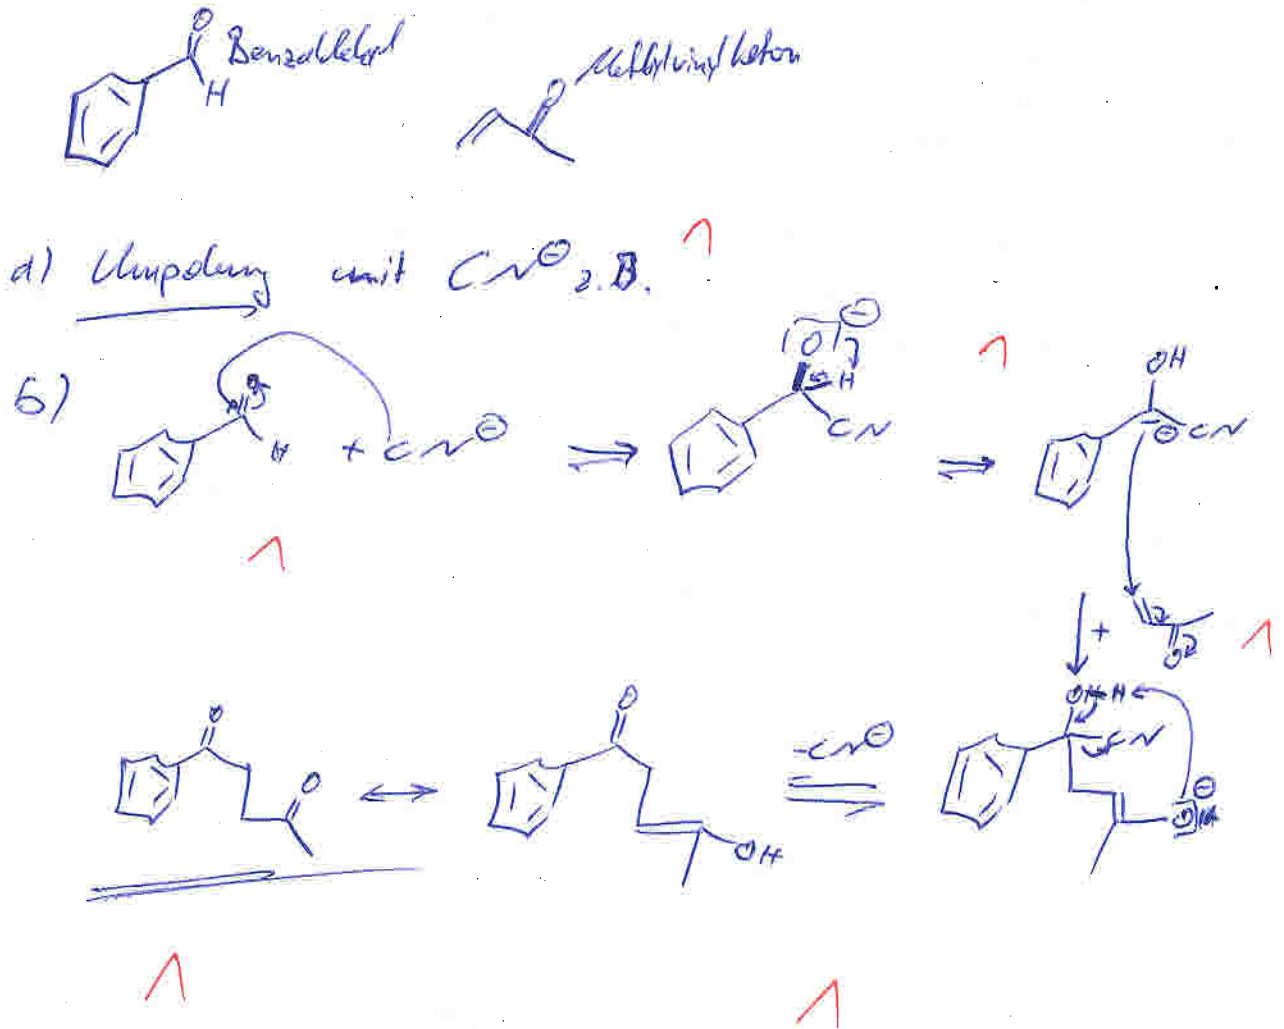 O
Benzaldehyd
H
O
Methylvinylketon
a) Umpolung mit CN⊖ z.B.
1
b)
O
H
+ CN⊖
O ⊖
H
CN
1
OH
⊖ CN
1
+
O
1
O
O
O
OH
-CN⊖
OH H
CN
⊖
O
1
1